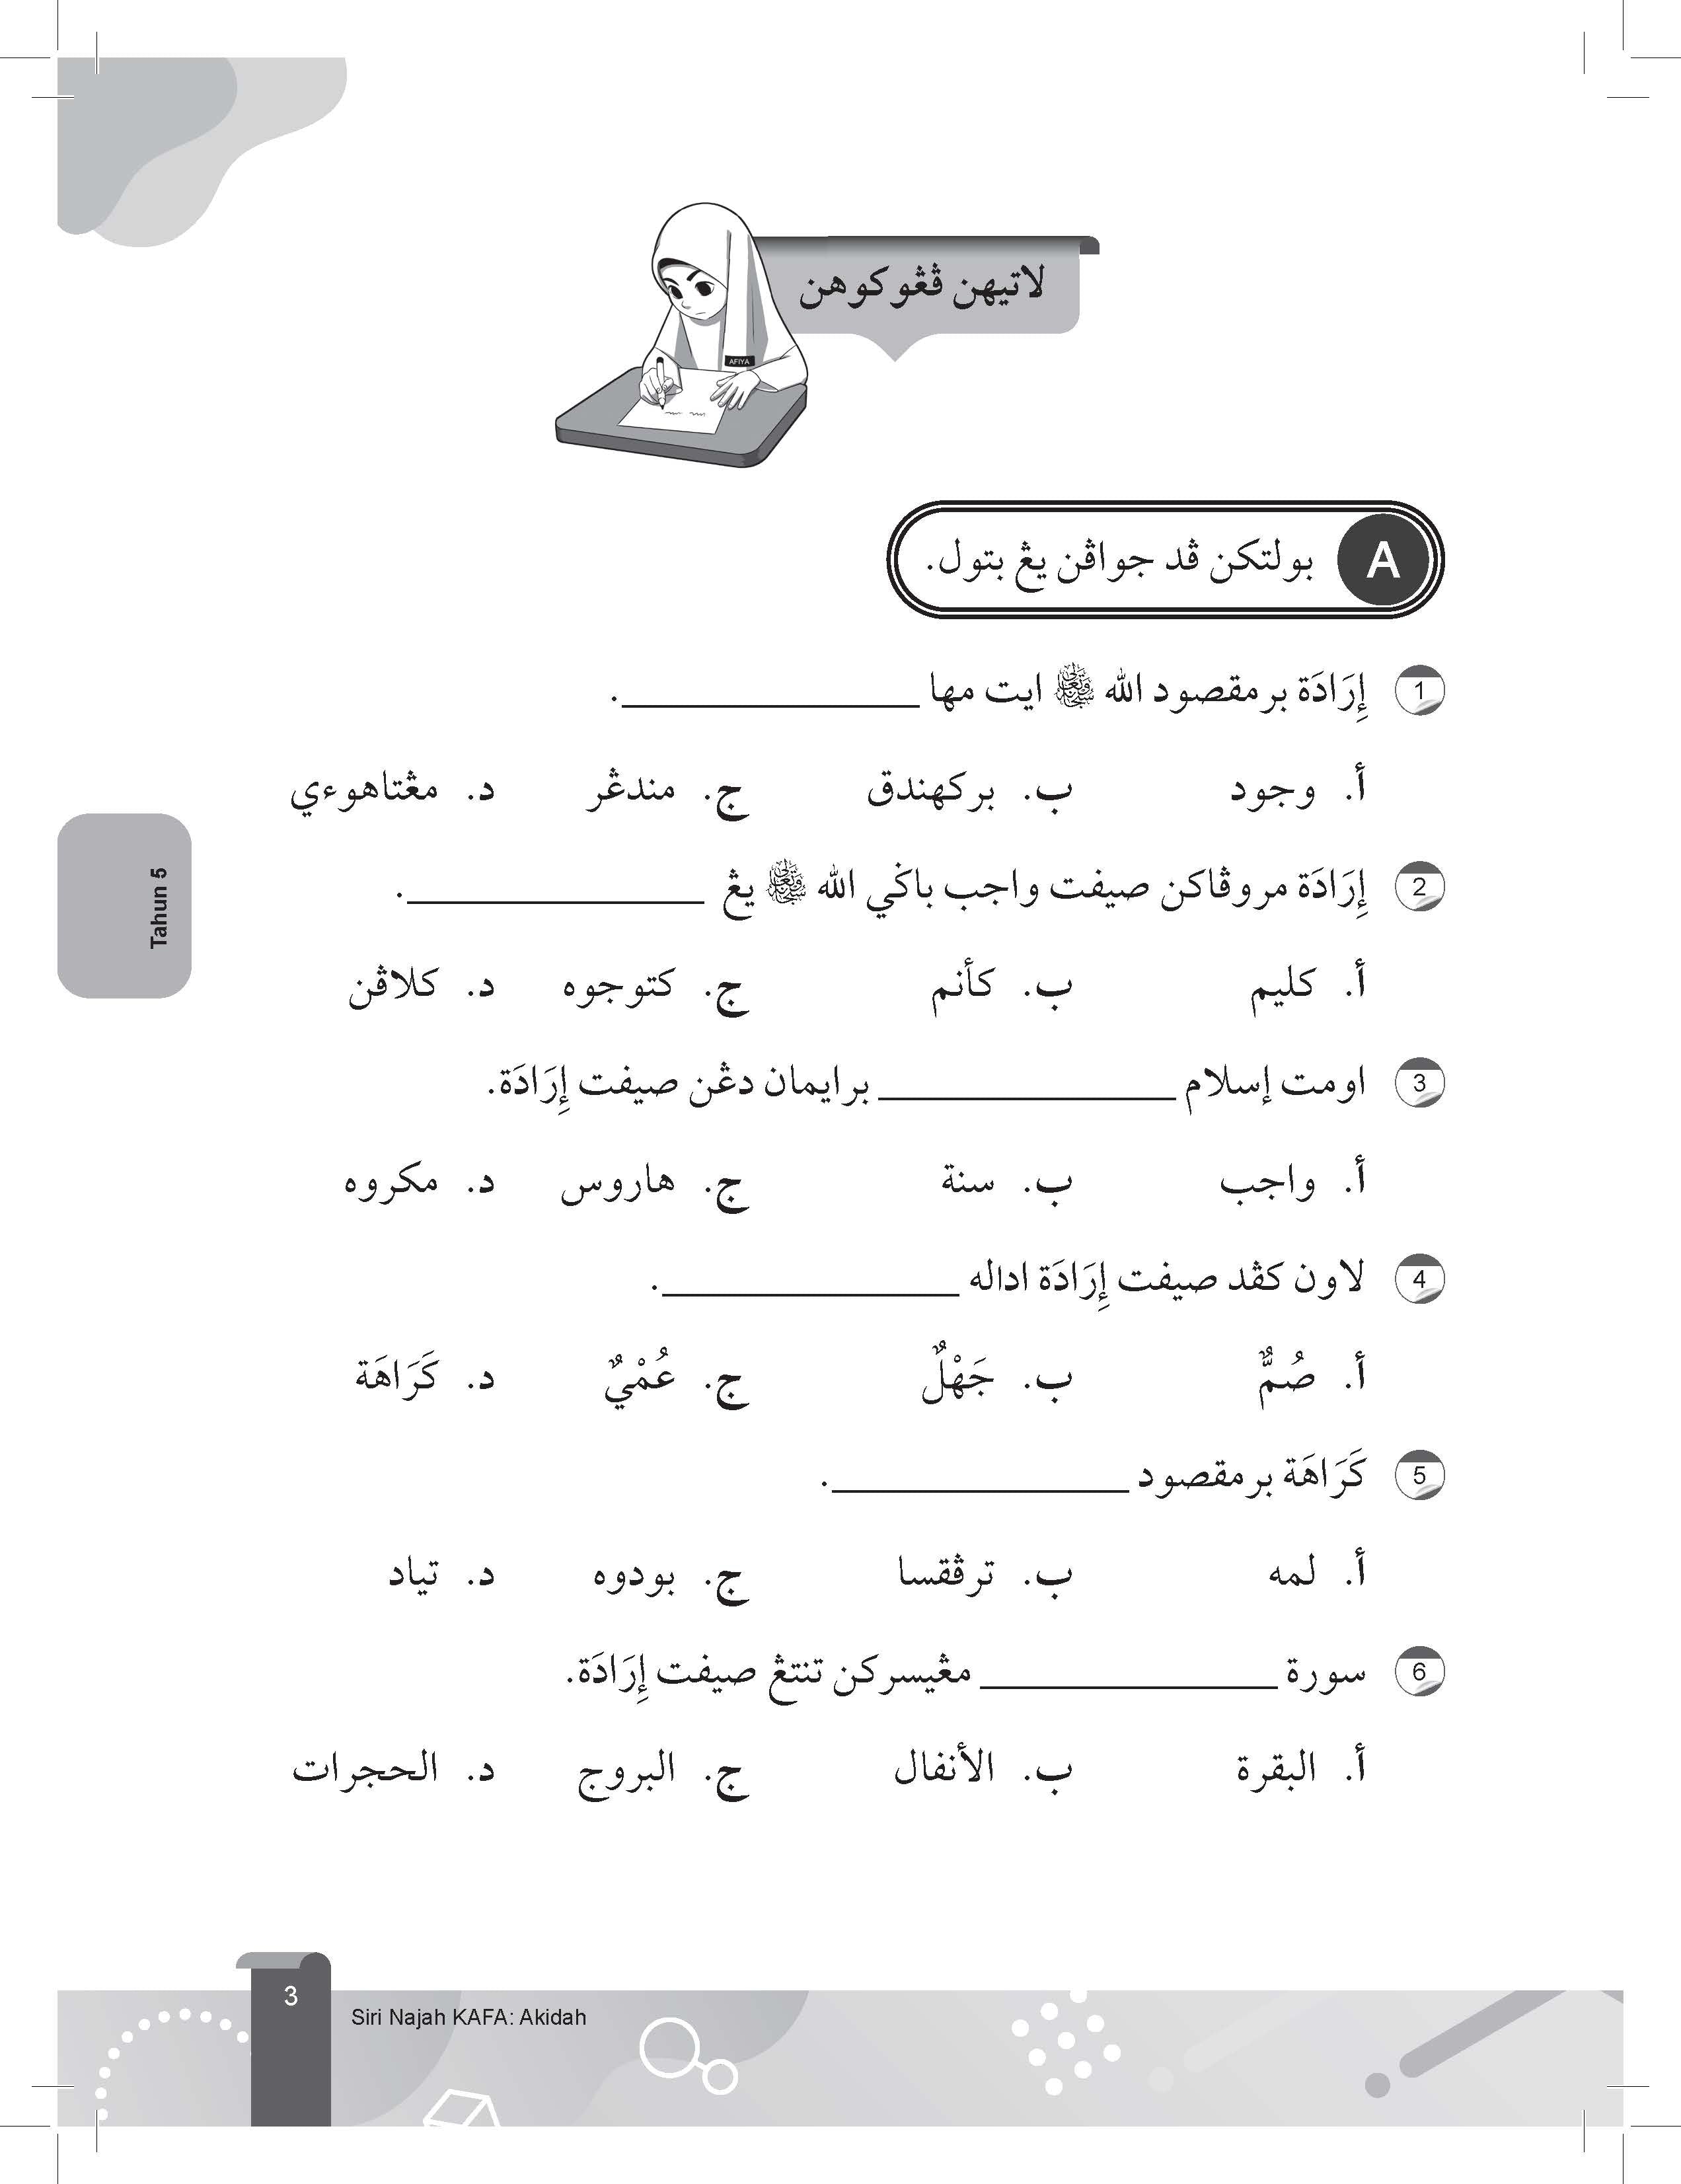 لاتيهن ڤڠوكوهن
AFIYA
A بولتكن ڤد جواڤن يڠ بتول.
1 إِرَادَة برمقصود الله سبحانه وتعالى ايت مها ______.
أ. وجود ب. بركهندق ج. مندڠر د. مڠتاهوءي
2 إِرَادَة مروڤاكن صيفت واجب باݢي الله سبحانه وتعالى يڠ ______.
أ. كليم ب. كأنم ج. كتوجوه د. كلاڤن
3 اومت إسلام ______ برايمان دڠن صيفت إِرَادَة.
أ. واجب ب. سنة ج. هاروس د. مكروه
4 لاون كڤد صيفت إِرَادَة اداله ______.
أ. صُمٌّ ب. جَهْلٌ ج. عُمْيٌ د. كَرَاهَة
5 كَرَاهَة برمقصود ______.
أ. لمه ب. ترڤقسا ج. بودوه د. تياد
6 سورة ______ مڠيسركن تنتڠ صيفت إِرَادَة.
أ. البقرة ب. الأنفال ج. البروج د. الحجرات
Tahun 5
3
Siri Najah KAFA: Akidah